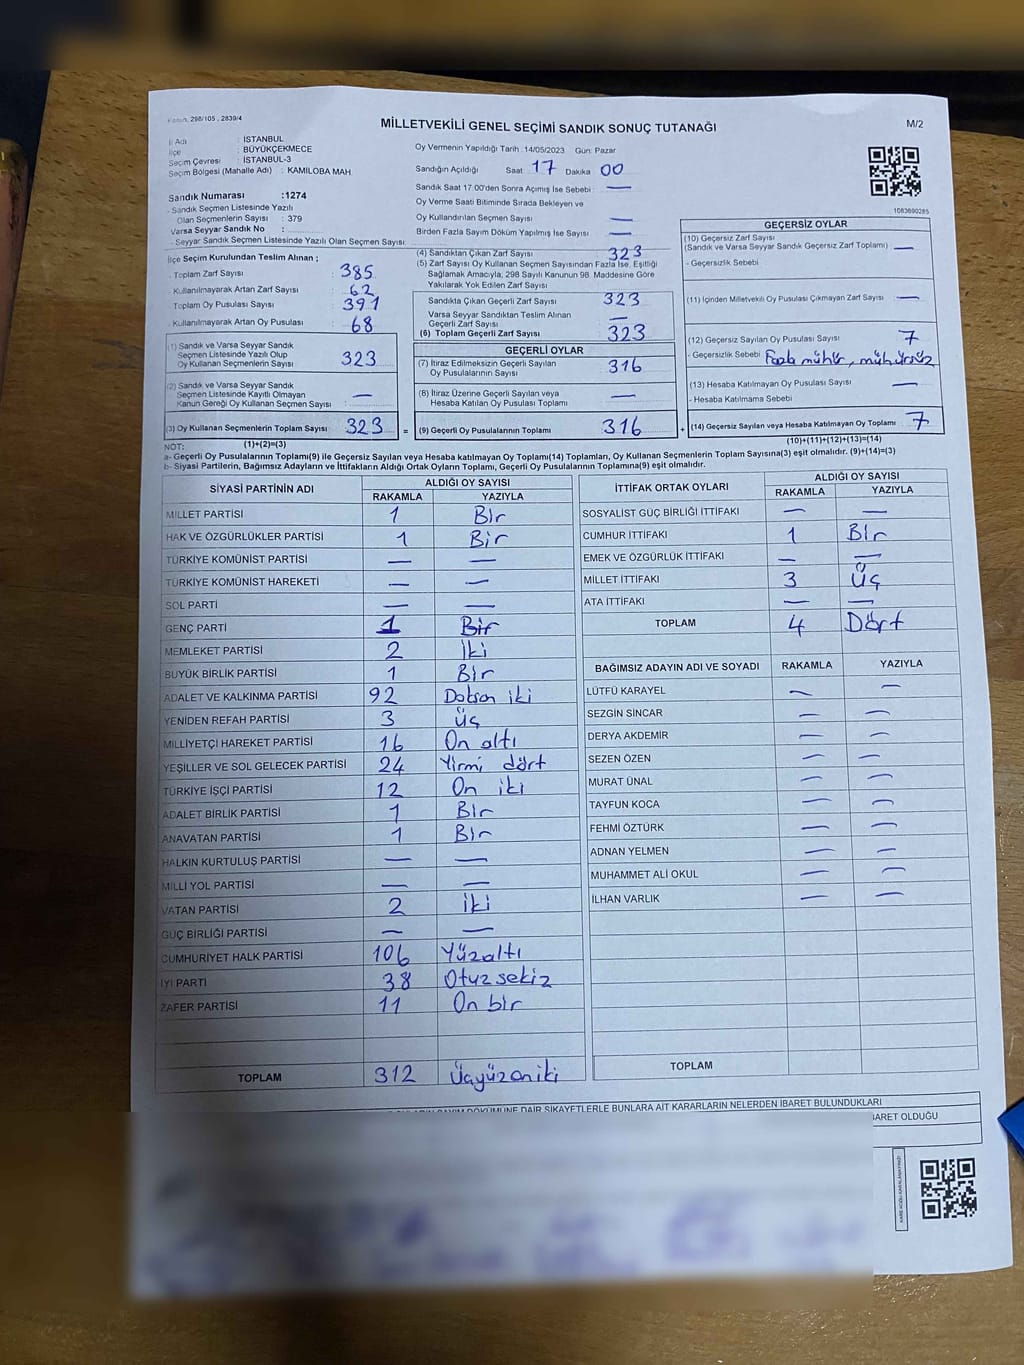 Kanun, 298/105 , 2839/4
MİLLETVEKİLİ GENEL SEÇİMİ SANDIK SONUÇ TUTANAĞI
M/2
İl Adı : İSTANBUL
İlçe : BÜYÜKÇEKMECE
Seçim Çevresi : İSTANBUL-3
Seçim Bölgesi (Mahalle Adı) : KAMİLOBA MAH.
Sandık Numarası :1274
- Sandık Seçmen Listesinde Yazılı
Olan Seçmenlerin Sayısı : 379
Varsa Seyyar Sandık No :
- Seyyar Sandık Seçmen Listesinde Yazılı Olan Seçmen Sayısı:
Oy Vermenin Yapıldığı Tarih : 14/05/2023 Gün: Pazar
Sandığın Açıldığı Saat 17 Dakika 00
Sandık Saat 17:00'den Sonra Açımış İse Sebebi : —
Oy Verme Saati Bitiminde Sırada Bekleyen ve
Oy Kullandırılan Seçmen Sayısı : —
Birden Fazla Sayım Döküm Yapılmış İse Sayısı : —
1083690285
İlçe Seçim Kurulundan Teslim Alınan ;
- Toplam Zarf Sayısı : 385
- Kullanılmayarak Artan Zarf Sayısı : 62
- Toplam Oy Pusulası Sayısı : 391
- Kullanılmayarak Artan Oy Pusulası : 68
(1) Sandık ve Varsa Seyyar Sandık
Seçmen Listesinde Yazılı Olup
Oy Kullanan Seçmenlerin Sayısı : 323
(2) Sandık ve Varsa Seyyar Sandık
Seçmen Listesinde Kayıtlı Olmayan
Kanun Gereği Oy Kullanan Seçmen Sayısı : —
(3) Oy Kullanan Seçmenlerin Toplam Sayısı : 323 =
(4) Sandıktan Çıkan Zarf Sayısı : 323
(5) Zarf Sayısı Oy Kullanan Seçmen Sayısından Fazla İse, Eşitliği
Sağlamak Amacıyla; 298 Sayılı Kanunun 98. Maddesine Göre
Yakılarak Yok Edilen Zarf Sayısı :
Sandıkta Çıkan Geçerli Zarf Sayısı : 323
Varsa Seyyar Sandıktan Teslim Alınan
Geçerli Zarf Sayısı : —
(6) Toplam Geçerli Zarf Sayısı : 323
GEÇERLİ OYLAR
(7) İtiraz Edilmeksizin Geçerli Sayılan
Oy Pusulalarının Sayısı : 316
(8) İtiraz Üzerine Geçerli Sayılan veya
Hesaba Katılan Oy Pusulası Toplamı : —
(9) Geçerli Oy Pusulalarının Toplamı : 316 +
GEÇERSİZ OYLAR
(10) Geçersiz Zarf Sayısı
(Sandık ve Varsa Seyyar Sandık Geçersiz Zarf Toplamı) : —
- Geçersizlik Sebebi :
(11) İçinden Milletvekili Oy Pusulası Çıkmayan Zarf Sayısı : —
(12) Geçersiz Sayılan Oy Pusulası Sayısı : 7
- Geçersizlik Sebebi : Fazla mühür, mühürsüz
(13) Hesaba Katılmayan Oy Pusulası Sayısı : —
- Hesaba Katılmama Sebebi :
(14) Geçersiz Sayılan veya Hesaba Katılmayan Oy Toplamı : 7
NOT: (1)+(2)=(3) (10)+(11)+(12)+(13)=(14)
a- Geçerli Oy Pusulalarının Toplamı(9) ile Geçersiz Sayılan veya Hesaba Katılmayan Oy Toplamı(14) Toplamları, Oy Kullanan Seçmenlerin Toplam Sayısına(3) eşit olmalıdır. (9)+(14)=(3)
b- Siyasi Partilerin, Bağımsız Adayların ve İttifakların Aldığı Ortak Oyların Toplamı, Geçerli Oy Pusulalarının Toplamına(9) eşit olmalıdır.
SİYASİ PARTİNİN ADI ALDIĞI OY SAYISI
RAKAMLA YAZIYLA
MİLLET PARTİSİ 1 Bir
HAK VE ÖZGÜRLÜKLER PARTİSİ 1 Bir
TÜRKİYE KOMÜNİST PARTİSİ — —
TÜRKİYE KOMÜNİST HAREKETİ — —
SOL PARTİ — —
GENÇ PARTİ 1 Bir
MEMLEKET PARTİSİ 2 İki
BÜYÜK BİRLİK PARTİSİ 1 Bir
ADALET VE KALKINMA PARTİSİ 92 Doksan iki
YENİDEN REFAH PARTİSİ 3 Üç
MİLLİYETÇİ HAREKET PARTİSİ 16 On altı
YEŞİLLER VE SOL GELECEK PARTİSİ 24 Yirmi dört
TÜRKİYE İŞÇİ PARTİSİ 12 On iki
ADALET BİRLİK PARTİSİ 1 Bir
ANAVATAN PARTİSİ 1 Bir
HALKIN KURTULUŞ PARTİSİ — —
MİLLİ YOL PARTİSİ — —
VATAN PARTİSİ 2 İki
GÜÇ BİRLİĞİ PARTİSİ — —
CUMHURİYET HALK PARTİSİ 106 Yüzaltı
İYİ PARTİ 38 Otuz sekiz
ZAFER PARTİSİ 11 On bir
TOPLAM 312 Üçyüzoniki
İTTİFAK ORTAK OYLARI ALDIĞI OY SAYISI
RAKAMLA YAZIYLA
SOSYALİST GÜÇ BİRLİĞİ İTTİFAKI — —
CUMHUR İTTİFAKI 1 Bir
EMEK VE ÖZGÜRLÜK İTTİFAKI — —
MİLLET İTTİFAKI 3 Üç
ATA İTTİFAKI — —
TOPLAM 4 Dört
BAĞIMSIZ ADAYIN ADI VE SOYADI RAKAMLA YAZIYLA
LÜTFÜ KARAYEL — —
SEZGİN SİNCAR — —
DERYA AKDEMİR — —
SEZEN ÖZEN — —
MURAT ÜNAL — —
TAYFUN KOCA — —
FEHMİ ÖZTÜRK — —
ADNAN YELMEN — —
MUHAMMET ALİ OKUL — —
İLHAN VARLIK — —
TOPLAM
DÖKÜMÜNE DAİR ŞİKAYETLERLE BUNLARA AİT KARARLARIN NELERDEN İBARET BULUNDUKLARI
İBARET OLDUĞU